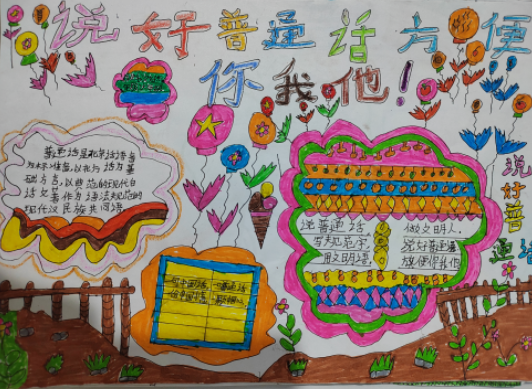 说好普通话方便
你我他！
普通话是以北京语音
为标准音，以北方话为基
础方言，以典范的现代白
话文著作为语法规范的
现代汉民族共同语
说普通话 做文明人
写规范字 说好普通话
用文明语 方便你我他
说好普通话